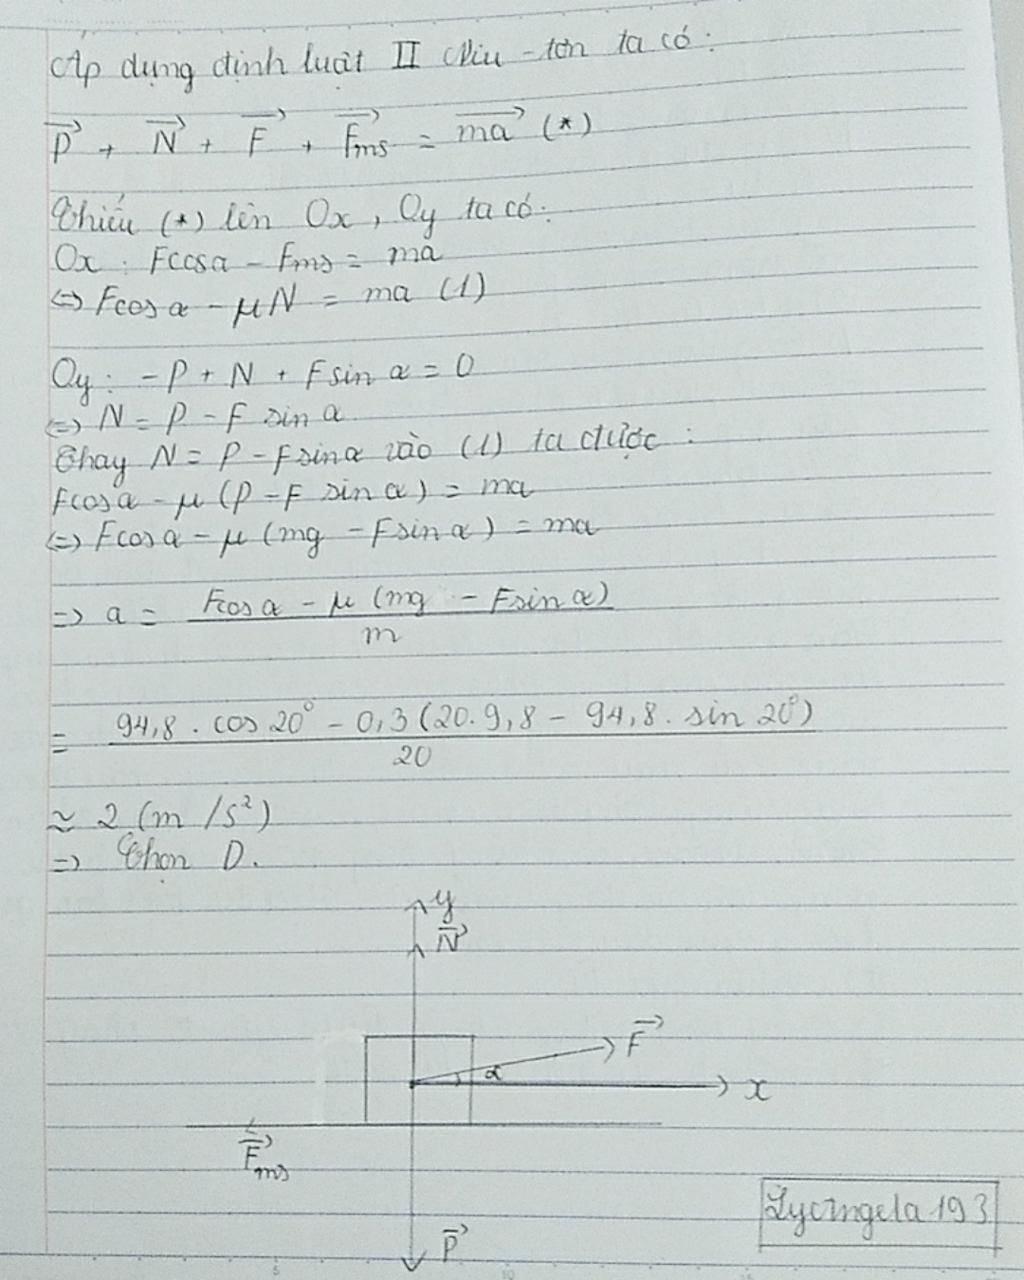 Áp dụng định luật II Niu-tơn ta có:
P⃗ + N⃗ + F⃗ + F⃗ms = ma⃗ (*)
Chiếu (*) lên Ox, Oy ta có:
Ox: Fcosα - Fms = ma
⇔ Fcosα - μN = ma (1)
Oy: -P + N + Fsinα = 0
⇔ N = P - F sinα
Thay N = P - Fsinα vào (1) ta được:
Fcosα - μ(P - F sinα) = ma
⇔ Fcosα - μ(mg - Fsinα) = ma
⇒ a = Fcosα - μ(mg - Fsinα)
m
= 94,8 . cos 20° - 0,3(20.9,8 - 94,8. sin 20°)
20
≈ 2 (m/s²)
⇒ Chọn D.
y
N⃗
F⃗
α
x
F⃗ms
P⃗
LycAngela 193